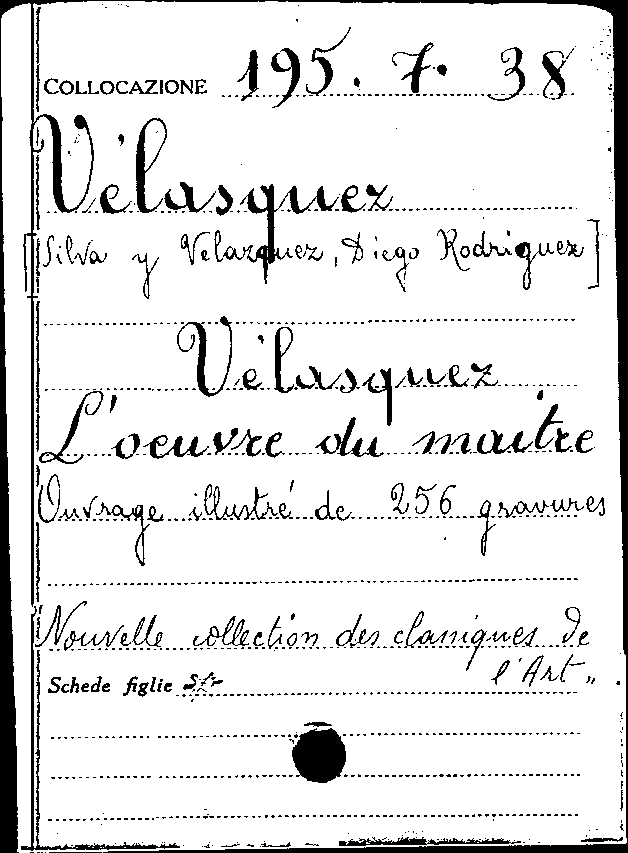 COLLOCAZIONE 195. 7. 38
Vélasquez
[Silva y Velazquez, Diego Rodriguez]
Vélasquez
L'oeuvre du maitre
Ouvrage illustré de 256 gravures
"Nouvelle collection des classiques de
l'Art"
Schede figlie